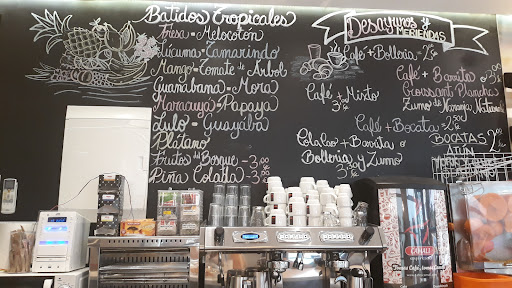 Batidos Tropicales
Fresa - Melocotón
Lúcuma - Tamarindo
Mango - Tomate de Árbol
Guanábana - Mora
Maracuya - Papaya
Lulo - Guayaba
Plátano
Frutos del Bosque - 3,00
Piña Colada - 3,00
Desayunos y
MERIENDAS
Café + Bollería - 2
Café + Mixto
3
Café + Barrita o
Croissant Plancha
Zumo de Naranja Natural
Café + Bocata
Colacao + Barrita o
Bollería y Zumo
3
BOCATAS
ATÚN